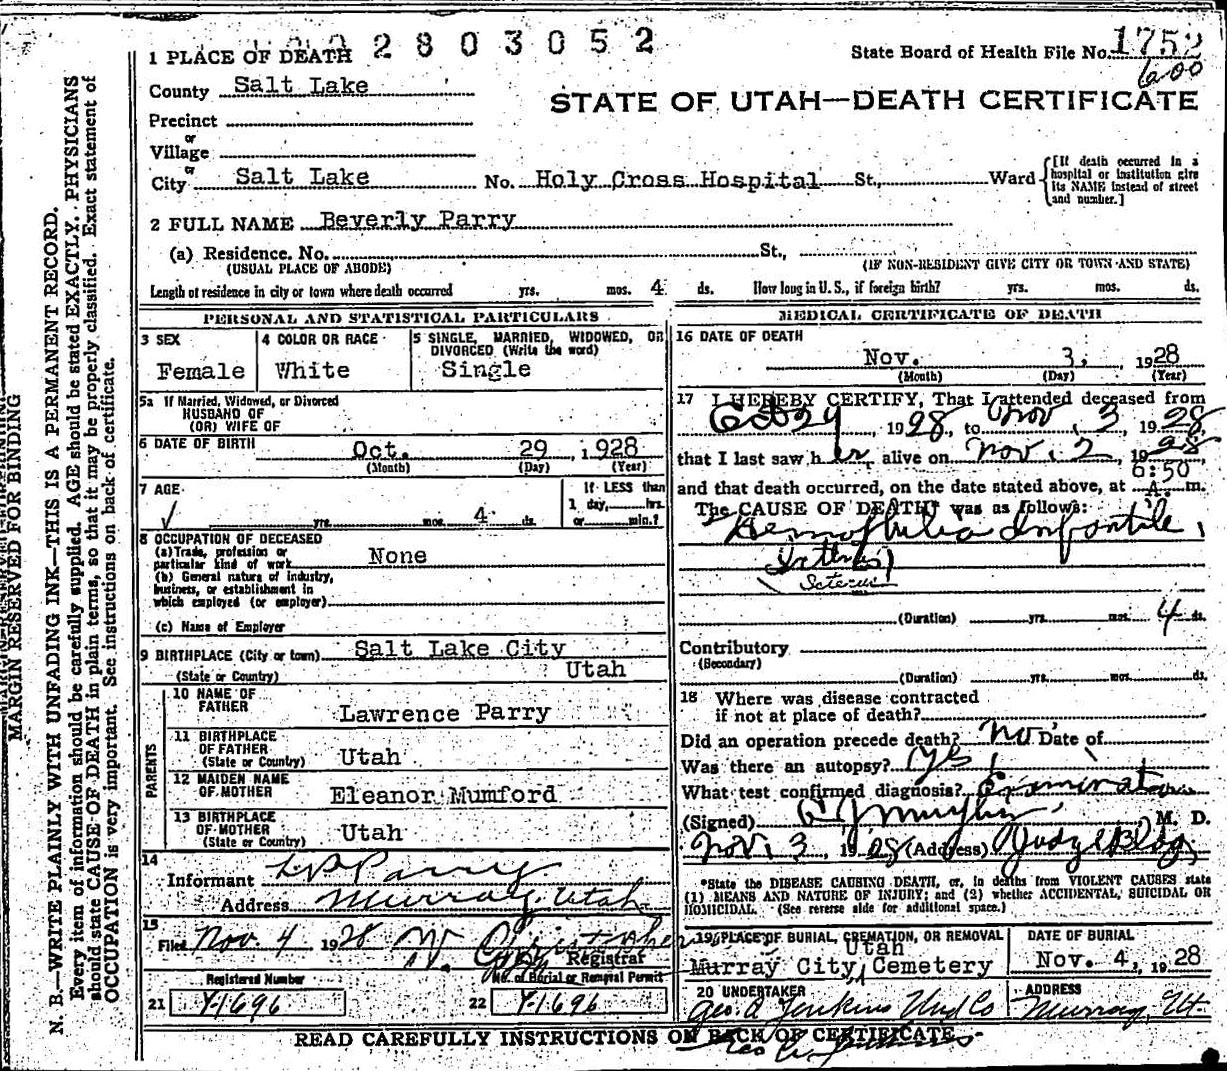 2803052
1 PLACE OF DEATH
State Board of Health File No. 1752
600
County Salt Lake
STATE OF UTAH—DEATH CERTIFICATE
Precinct
or
Village
or
City Salt Lake No. Holy Cross Hospital St., Ward
[If death occurred in a
hospital or institution give
its NAME instead of street
and number.]
2 FULL NAME Beverly Parry
(a) Residence. No. St.,
(USUAL PLACE OF ABODE) (IF NON-RESIDENT GIVE CITY OR TOWN AND STATE)
Length of residence in city or town where death occurred yrs. mos. 4 ds. How long in U. S., if foreign birth? yrs. mos. ds.
PERSONAL AND STATISTICAL PARTICULARS
3 SEX
Female
4 COLOR OR RACE
White
5 SINGLE, MARRIED, WIDOWED, OR
DIVORCED (Write the word)
Single
5a If Married, Widowed, or Divorced
HUSBAND OF
(OR) WIFE OF
6 DATE OF BIRTH Oct. 29, 1928
(Month) (Day) (Year)
7 AGE
yrs. mos. 4 ds.
If LESS than
1 day, hrs.
or min.?
8 OCCUPATION OF DECEASED
(a) Trade, profession or
particular kind of work None
(b) General nature of industry,
business, or establishment in
which employed (or employer)
(c) Name of Employer
9 BIRTHPLACE (City or town) Salt Lake City
(State or Country) Utah
PARENTS
10 NAME OF
FATHER Lawrence Parry
11 BIRTHPLACE
OF FATHER
(State or Country) Utah
12 MAIDEN NAME
OF MOTHER Eleanor Mumford
13 BIRTHPLACE
OF MOTHER
(State or Country) Utah
14
Informant L P Parry
Address Murray, Utah
15
Filed Nov. 4 1928 W. Christopher
Registrar
Registered Number No. of Burial or Removal Permit
21 Y-1696 22 Y-1696
MEDICAL CERTIFICATE OF DEATH
16 DATE OF DEATH
Nov. 3, 1928
(Month) (Day) (Year)
17 I HEREBY CERTIFY, That I attended deceased from
Oct 29, 1928, to Nov. 3, 1928,
that I last saw her alive on Nov. 2, 1928
6:50
and that death occurred, on the date stated above, at A. m.
The CAUSE OF DEATH* was as follows:
Hemophilia Infantile,
Icterus
(Icterus)
(Duration) yrs. mos. 4 ds.
Contributory
(Secondary)
(Duration) yrs. mos. ds.
18 Where was disease contracted
if not at place of death?
Did an operation precede death? No Date of
Was there an autopsy? Yes
What test confirmed diagnosis? Examination
(Signed) M. D.
Nov. 3, 1928 (Address) Judge Bldg
*State the DISEASE CAUSING DEATH, or, in deaths from VIOLENT CAUSES state
(1) MEANS AND NATURE OF INJURY; and (2) whether ACCIDENTAL, SUICIDAL OR
HOMICIDAL. (See reverse side for additional space.)
19 PLACE OF BURIAL, CREMATION, OR REMOVAL
Utah
Murray City, Cemetery
DATE OF BURIAL
Nov. 4, 1928
20 UNDERTAKER
Geo. A Jenkins Und Co
ADDRESS
Murray, Ut.
READ CAREFULLY INSTRUCTIONS ON BACK OF CERTIFICATE
Geo A. Jenkins
MARGIN RESERVED FOR BINDING
N. B.—WRITE PLAINLY WITH UNFADING INK—THIS IS A PERMANENT RECORD.
Every item of information should be carefully supplied. AGE should be stated EXACTLY. PHYSICIANS
should state CAUSE OF DEATH in plain terms, so that it may be properly classified. Exact statement of
OCCUPATION is very important. See instructions on back of certificate.